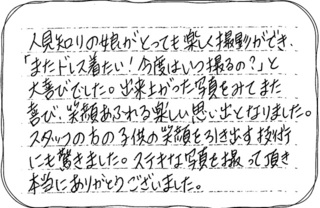 人見知りの娘がとっても楽しく撮影ができ、
「またドレス着たい！今度はいつ撮るの？」と
大喜びでした。出来上がった写真をみてまた
喜び、笑顔あふれる楽しい思い出となりました。
スタッフの方の子供の笑顔を引き出す技術
にも驚きました。ステキな写真を撮って頂き
本当にありがとうございました。